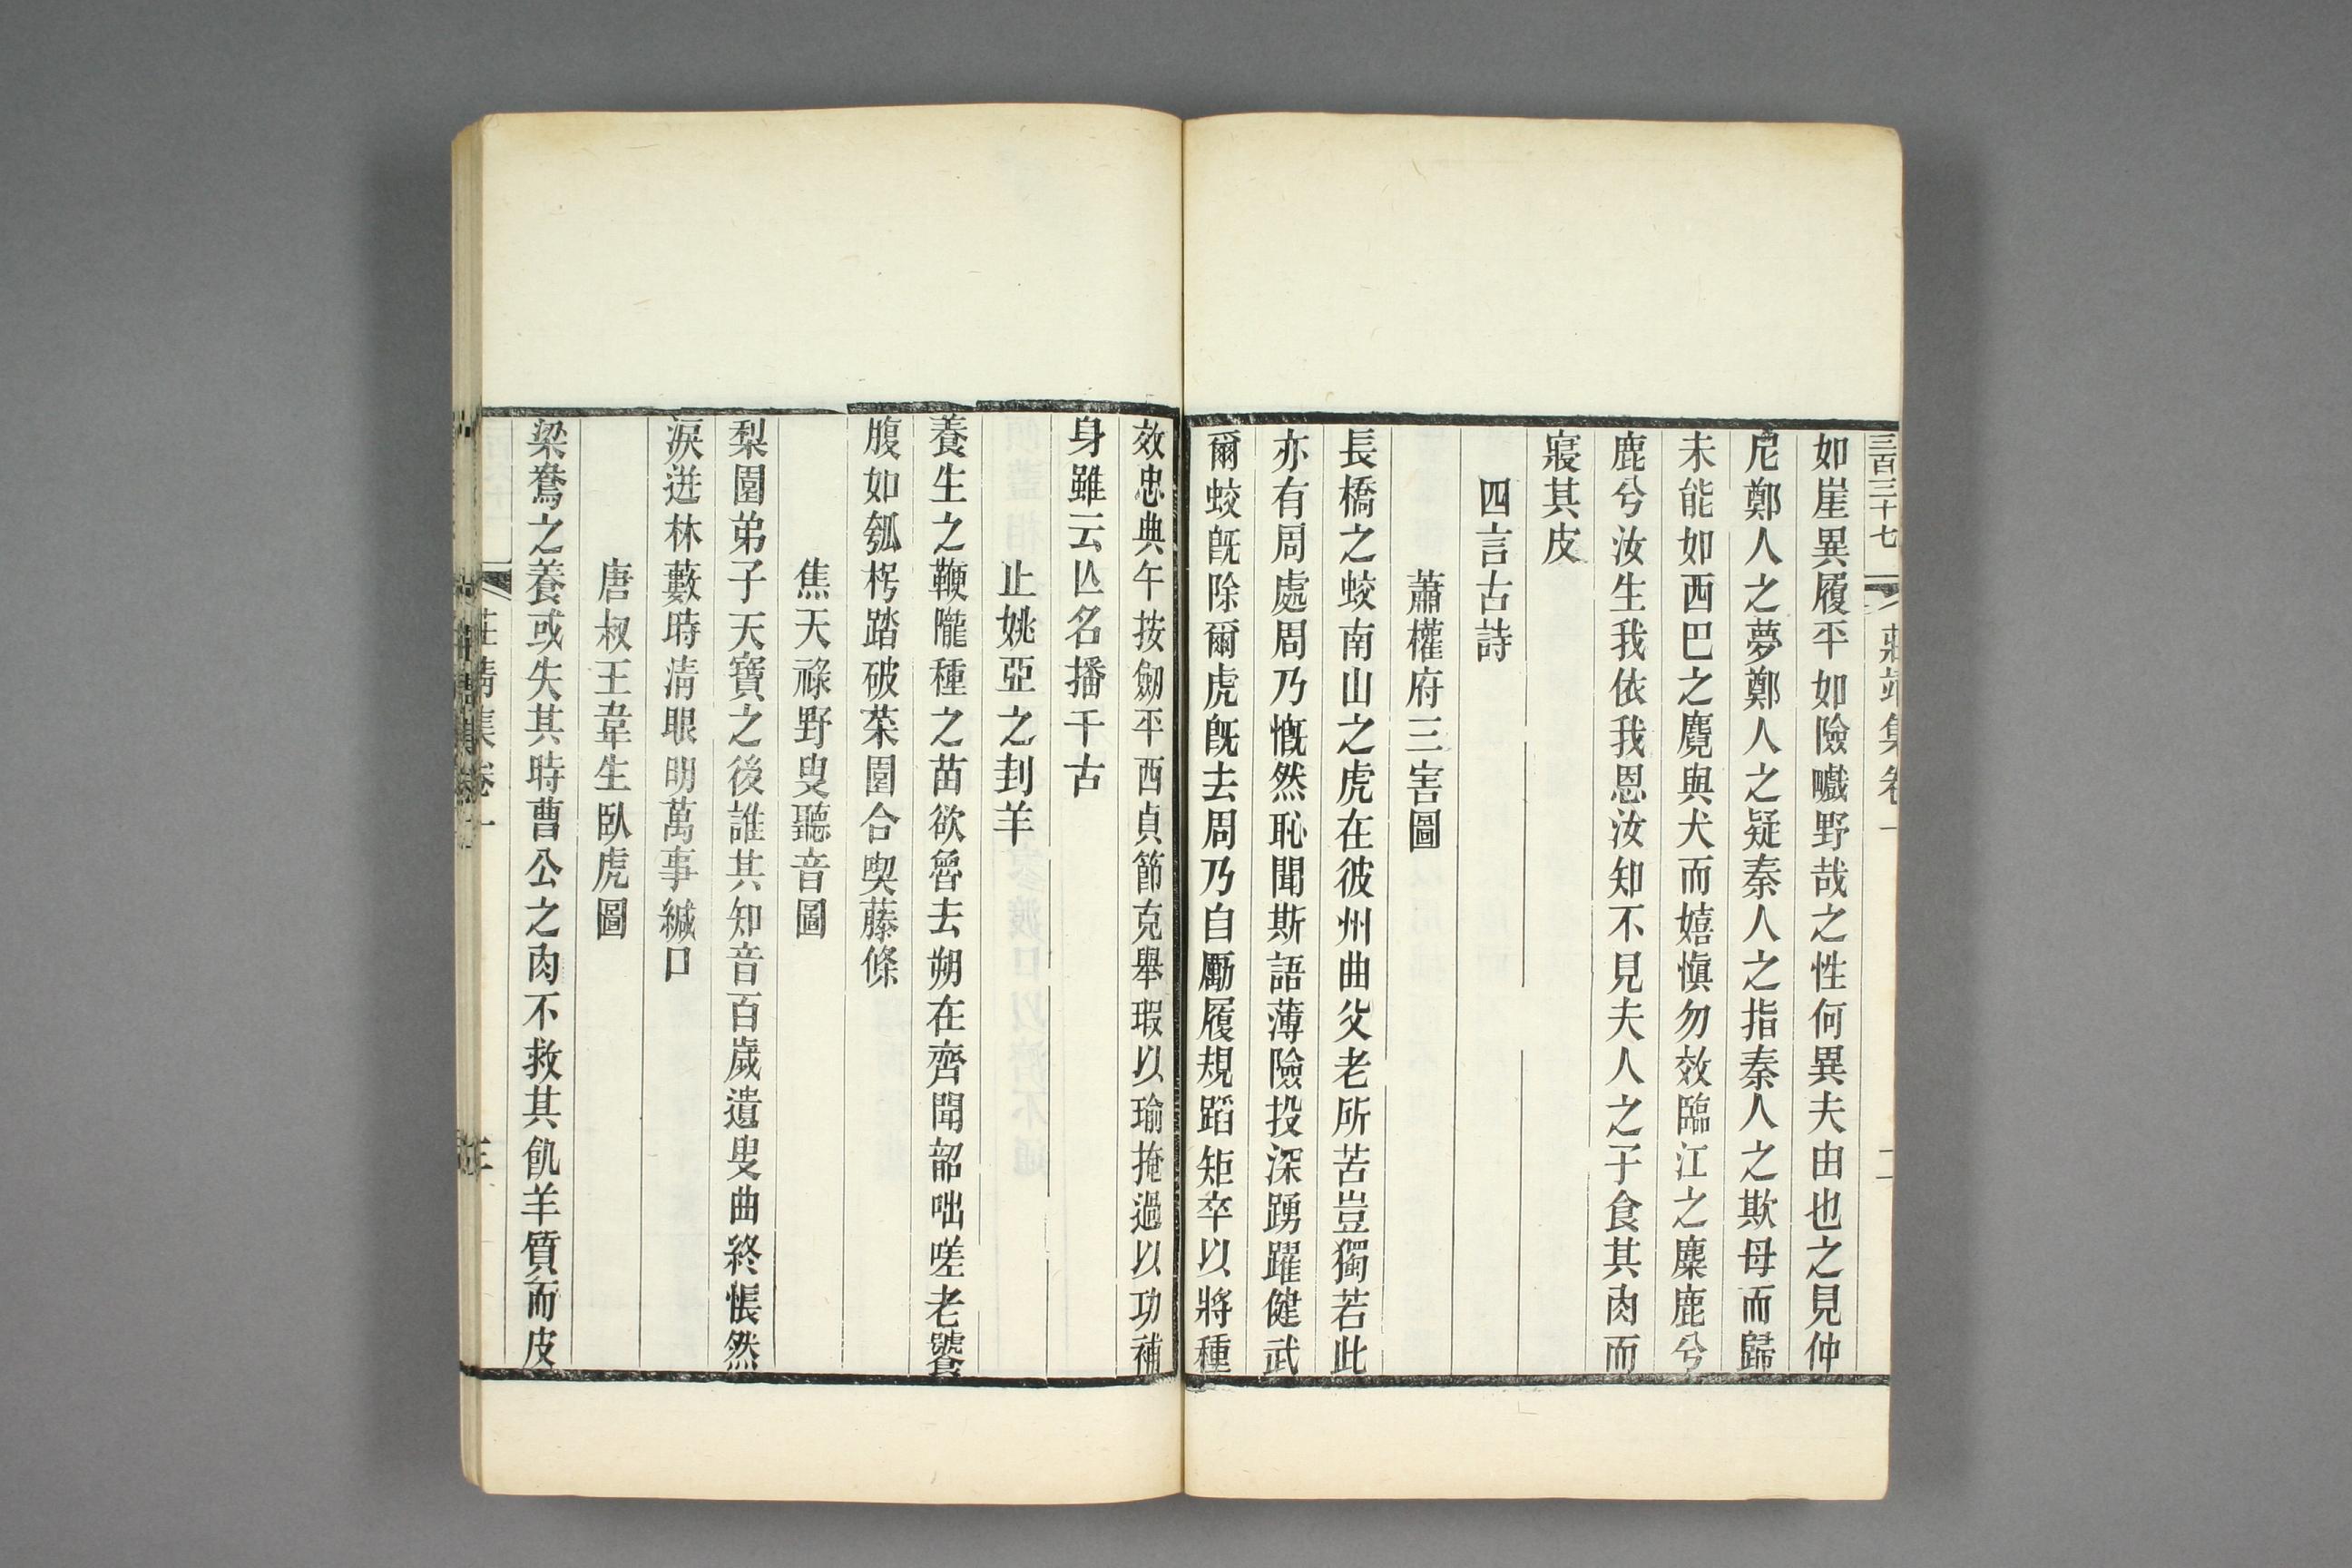 三百三十七
莊靖集卷一
二
如崖異履平如險巇野哉之性何異夫由也之見仲
尼鄭人之夢鄭人之疑秦人之指秦人之欺母而歸
未能如西巴之麑與犬而嬉愼勿效臨江之麋鹿兮
鹿兮汝生我依我恩汝知不見夫人之子食其肉而
寢其皮
四言古詩
蕭權府三害圖
長橋之蛟南山之虎在彼州曲父老所苦豈獨若此
亦有周處周乃慨然恥聞斯語薄險投深踴躍健武
爾蛟旣除爾虎旣去周乃自勵履規蹈矩卒以將種
效忠典午按劒平西貞節克舉瑕以瑜掩過以功補
身雖云亾名播千古
止姚亞之刲羊
養生之鞭隴種之苗欲魯去朔在齊聞韶咄嗟老饕
腹如瓠枵踏破菜園合喫藤條
焦天祿野叟聽音圖
梨園弟子天寶之後誰其知音百歲遺叟曲終悵然
淚迸林藪時淸眼明萬事緘口
唐叔王韋生臥虎圖
梁鴦之養或失其時曹公之肉不救其飢羊質而皮
莊靖集卷一
三